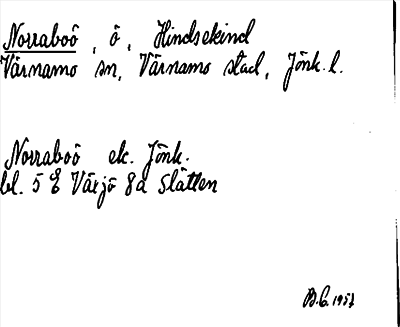 Norraboö, ö, Hindsekind
Värnamo sn, Värnamo stad, Jönk. l.
Norraboö ek. Jönk.
bl. 5 E Växjö 8d Slätten
B.C. 1957